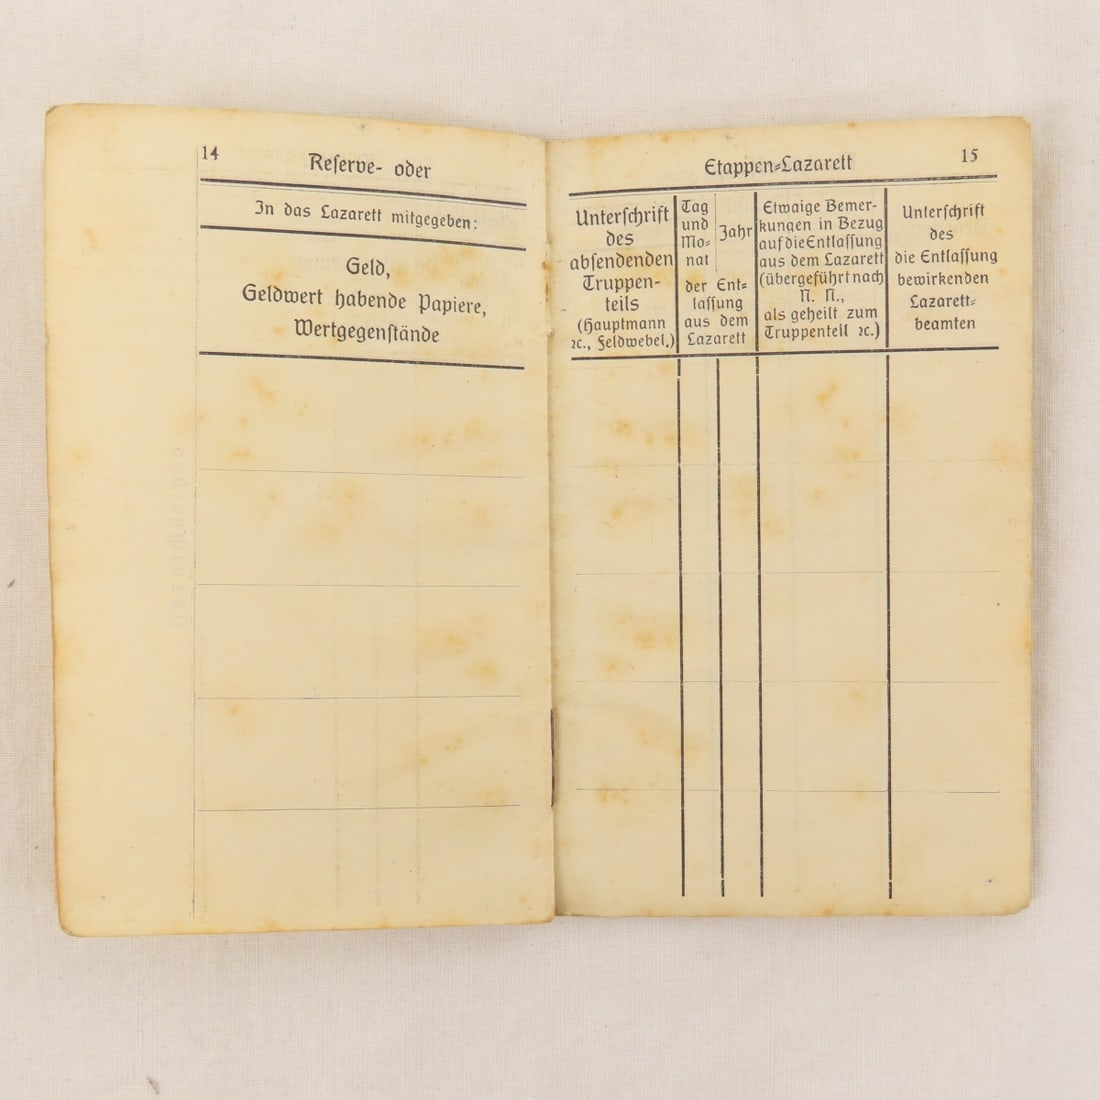 14
Reserve- oder
In das Lazarett mitgegeben:
Geld,
Geldwert habende Papiere,
Wertgegenstände
Etappen-Lazarett
15
Unterschrift
des
absendenden
Truppen-
teils
(Hauptmann
ꝛc., Feldwebel.)
Tag
und
Mo-
nat
Jahr
der Ent-
lassung
aus dem
Lazarett
Etwaige Bemer-
kungen in Bezug
auf die Entlassung
aus dem Lazarett
(übergeführt nach
N. N.,
als geheilt zum
Truppenteil ꝛc.)
Unterschrift
des
die Entlassung
bewirkenden
Lazarett-
beamten